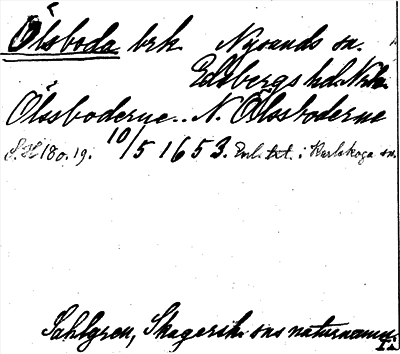 Ölsboda brk. Nysunds sn.
Edsbergs hd. Nrk.
Ölssboderne.. N. Ölssboderne
S.H 180.19. 10/5 1653. Enl. trt. i Karlskoga sn.
Sahlgren, Skagersh. sns naturnamn.